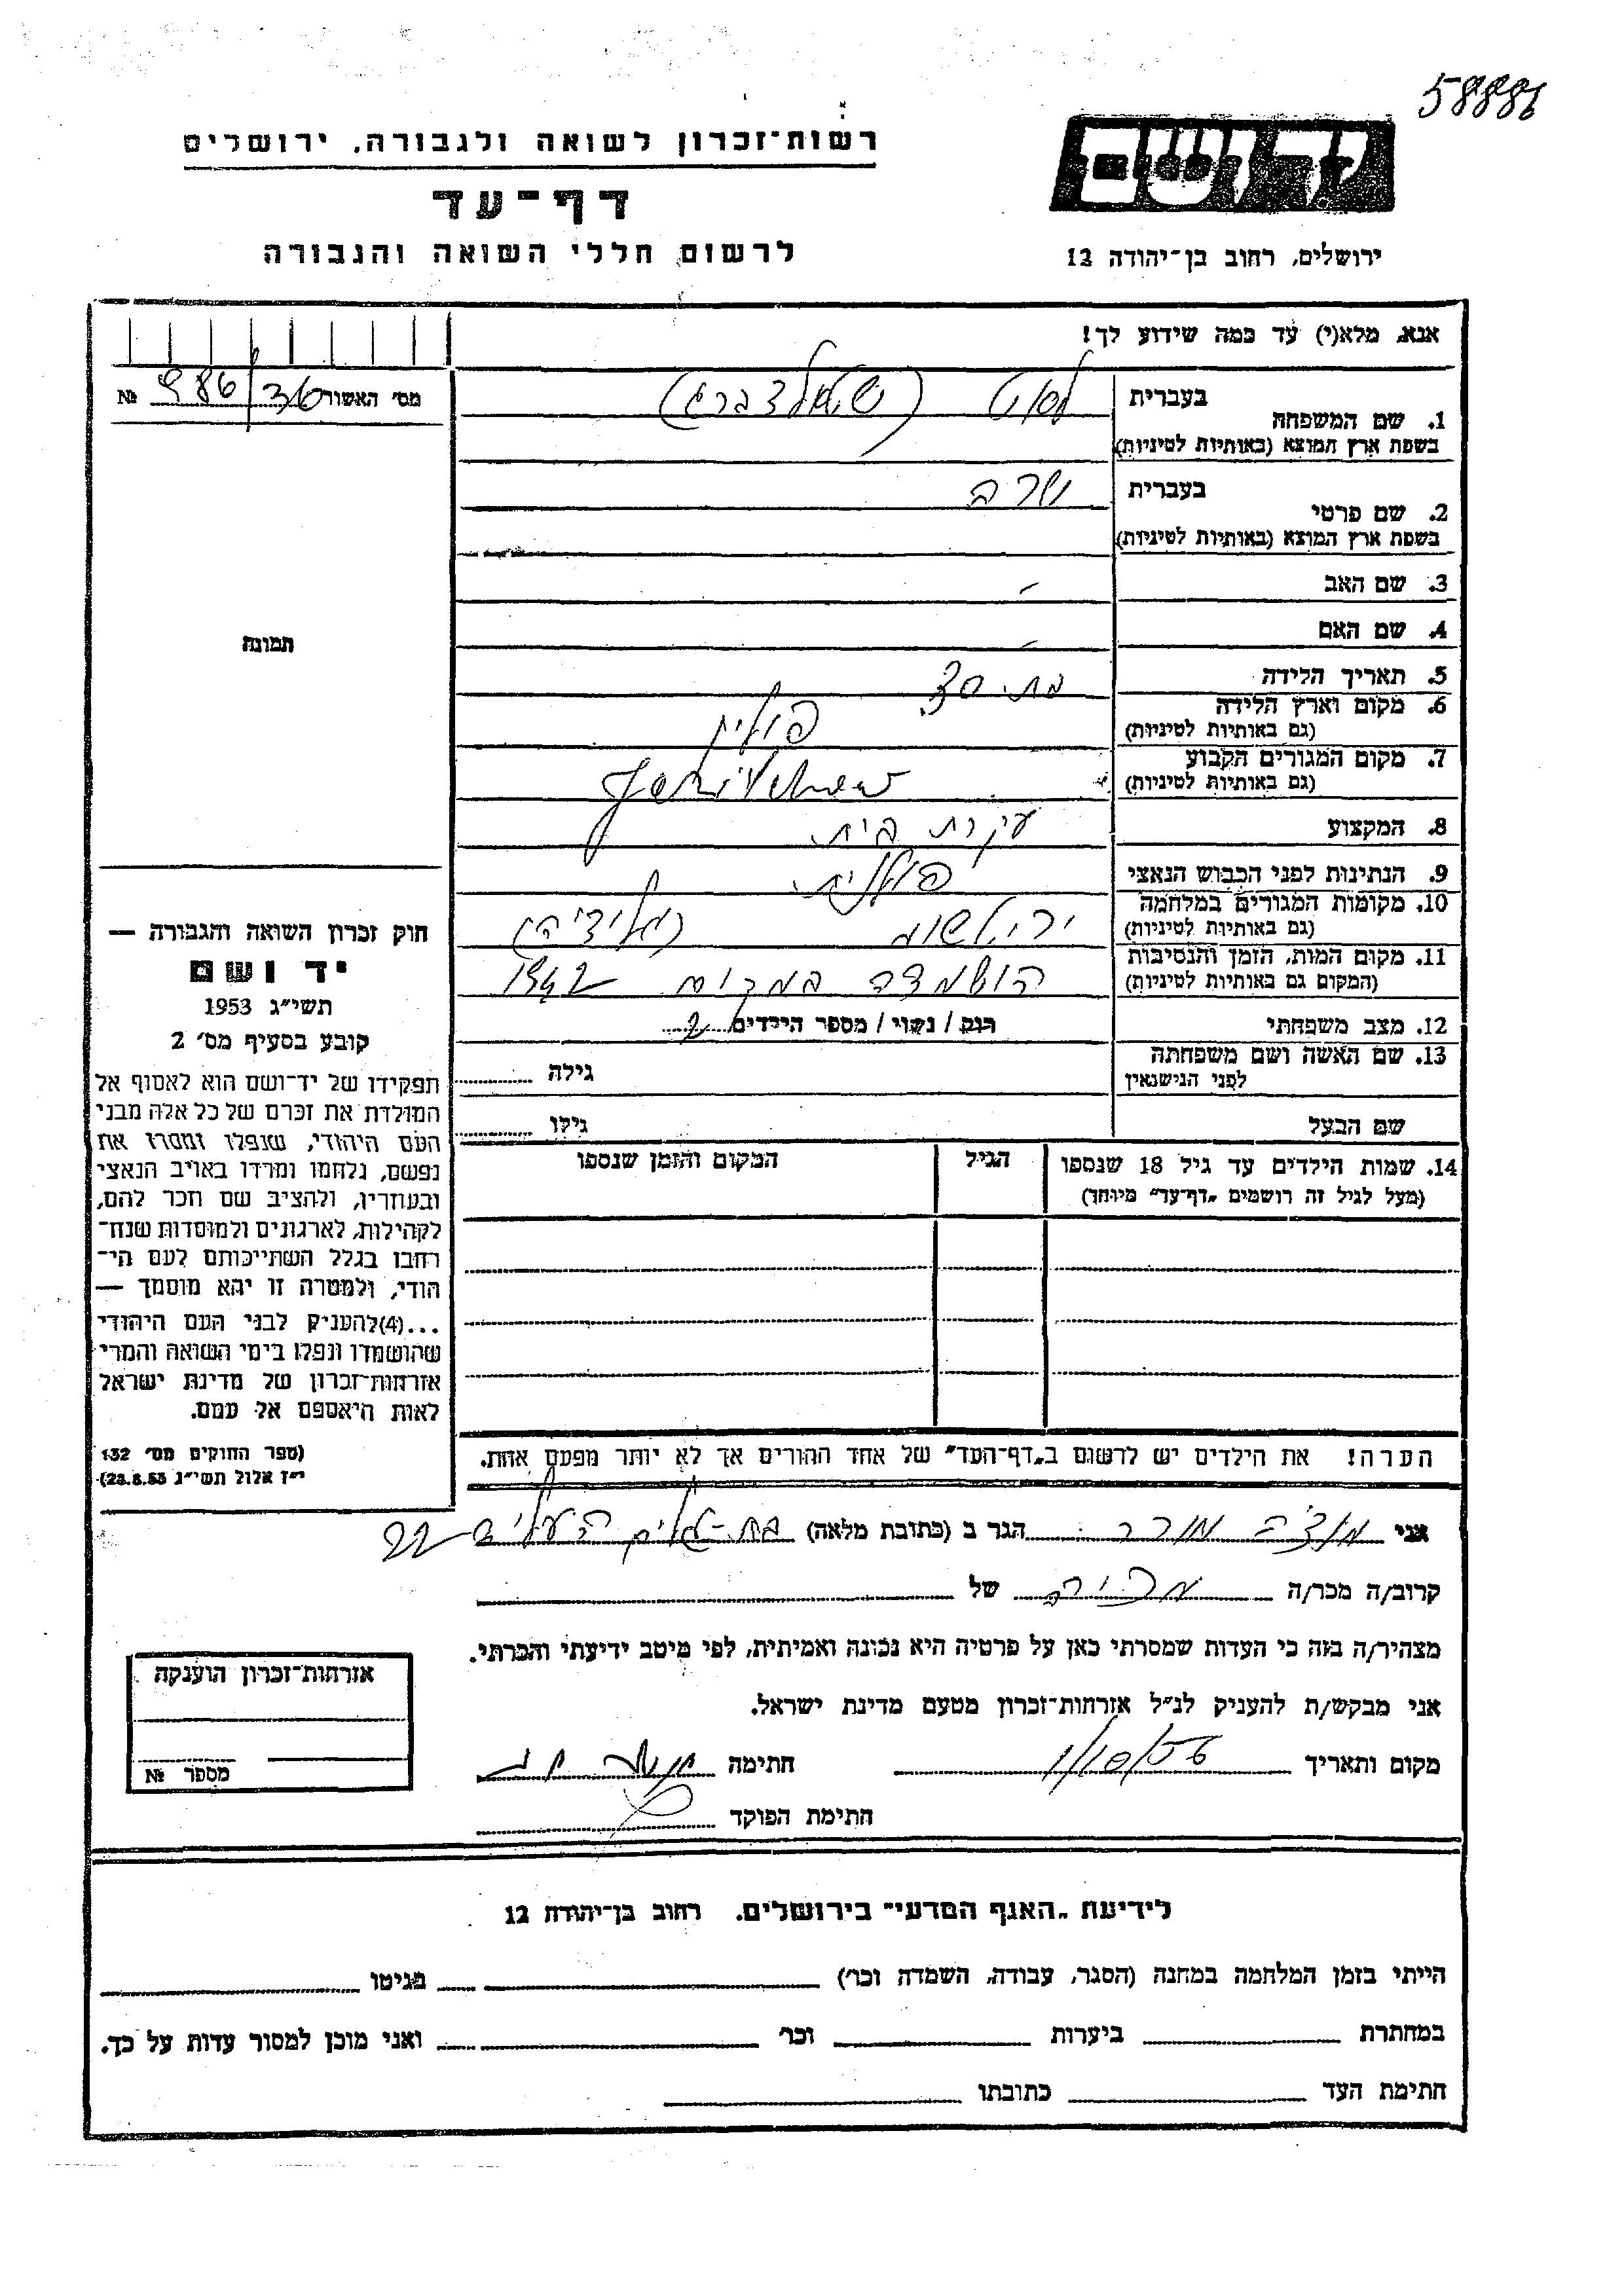 58886
רשות־זכרון לשואה ולגבורה, ירושלים
דף־עד
לרשום חללי השואה והגבורה
יד ושם
ירושלים, רחוב בן־יהודה 12
אנא, מלא(י) עד כמה שידוע לך!
מס׳ האשור 986/36 №
תמונה
1. שם המשפחה
בעברית
בשפת ארץ המוצא (באותיות לטיניות)
2. שם פרטי
בעברית שרה
בשפת ארץ המוצא (באותיות לטיניות)
3. שם האב -
4. שם האם -
5. תאריך הלידה
6. מקום וארץ הלידה פולין
(גם באותיות לטיניות)
7. מקום המגורים הקבוע
(גם באותיות לטיניות)
8. המקצוע עקרת בית
9. הנתינות לפני הכבוש הנאצי פולנית
10. מקומות המגורים במלחמה (גליציה)
(גם באותיות לטיניות)
11. מקום המות, הזמן והנסיבות הושמדה במקום 1942
(המקום גם באותיות לטיניות)
12. מצב משפחתי רווק / נשוי / מספר הילדים 2
13. שם האשה ושם משפחתה
לפני הנישואין גילה
שם הבעל גילו
14. שמות הילדים עד גיל 18 שנספו הגיל המקום והזמן שנספו
(מעל לגיל זה רושמים „דף־עד" מיוחד)
חוק זכרון השואה והגבורה —
יד ושם
תשי״ג 1953
קובע בסעיף מס׳ 2
תפקידו של יד־ושם הוא לאסוף אל
המולדת את זכרם של כל אלה מבני
העם היהודי, שנפלו ומסרו את
נפשם, נלחמו ומרדו באויב הנאצי
ובעוזריו, ולהציב שם וזכר להם,
לקהילות, לארגונים ולמוסדות שנח־
רבו בגלל השתייכותם לעם הי־
הודי, ולמטרה זו יהא מוסמך —
...(4) להעניק לבני העם היהודי
שהושמדו ונפלו בימי השואה והמרי
אזרחות־זכרון של מדינת ישראל
לאות היאספם אל עמם.
(ספר החוקים מס׳ 132
י״ז אלול תשי״ג 28.8.53)
הערה! את הילדים יש לרשום ב„דף־העד" של אחד ההורים אך לא יותר מפעם אחת.
אני הגר ב (כתובת מלאה) בת-גלים העליה 22
קרוב/ה מכר/ה מכירה של
מצהיר/ה בזה כי העדות שמסרתי כאן על פרטיה היא נכונה ואמיתית, לפי מיטב ידיעתי והכרתי.
אני מבקש/ת להעניק לנ״ל אזרחות־זכרון מטעם מדינת ישראל.
מקום ותאריך 1/10/55 חתימה
חתימת הפוקד
אזרחות־זכרון הוענקה
מספר №
לידיעת „האגף המדעי" בירושלים, רחוב בן־יהודה 12
הייתי בזמן המלחמה במחנה (הסגר, עבודה, השמדה וכו׳) בגיטו
במחתרת ביערות וכו׳ ואני מוכן למסור עדות על כך.
חתימת העד כתובתו